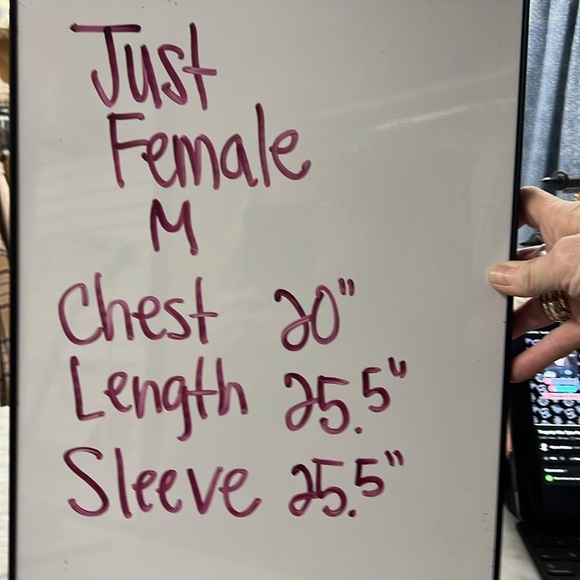 Just
Female
M
Chest 20"
Length 25.5"
Sleeve 25.5"